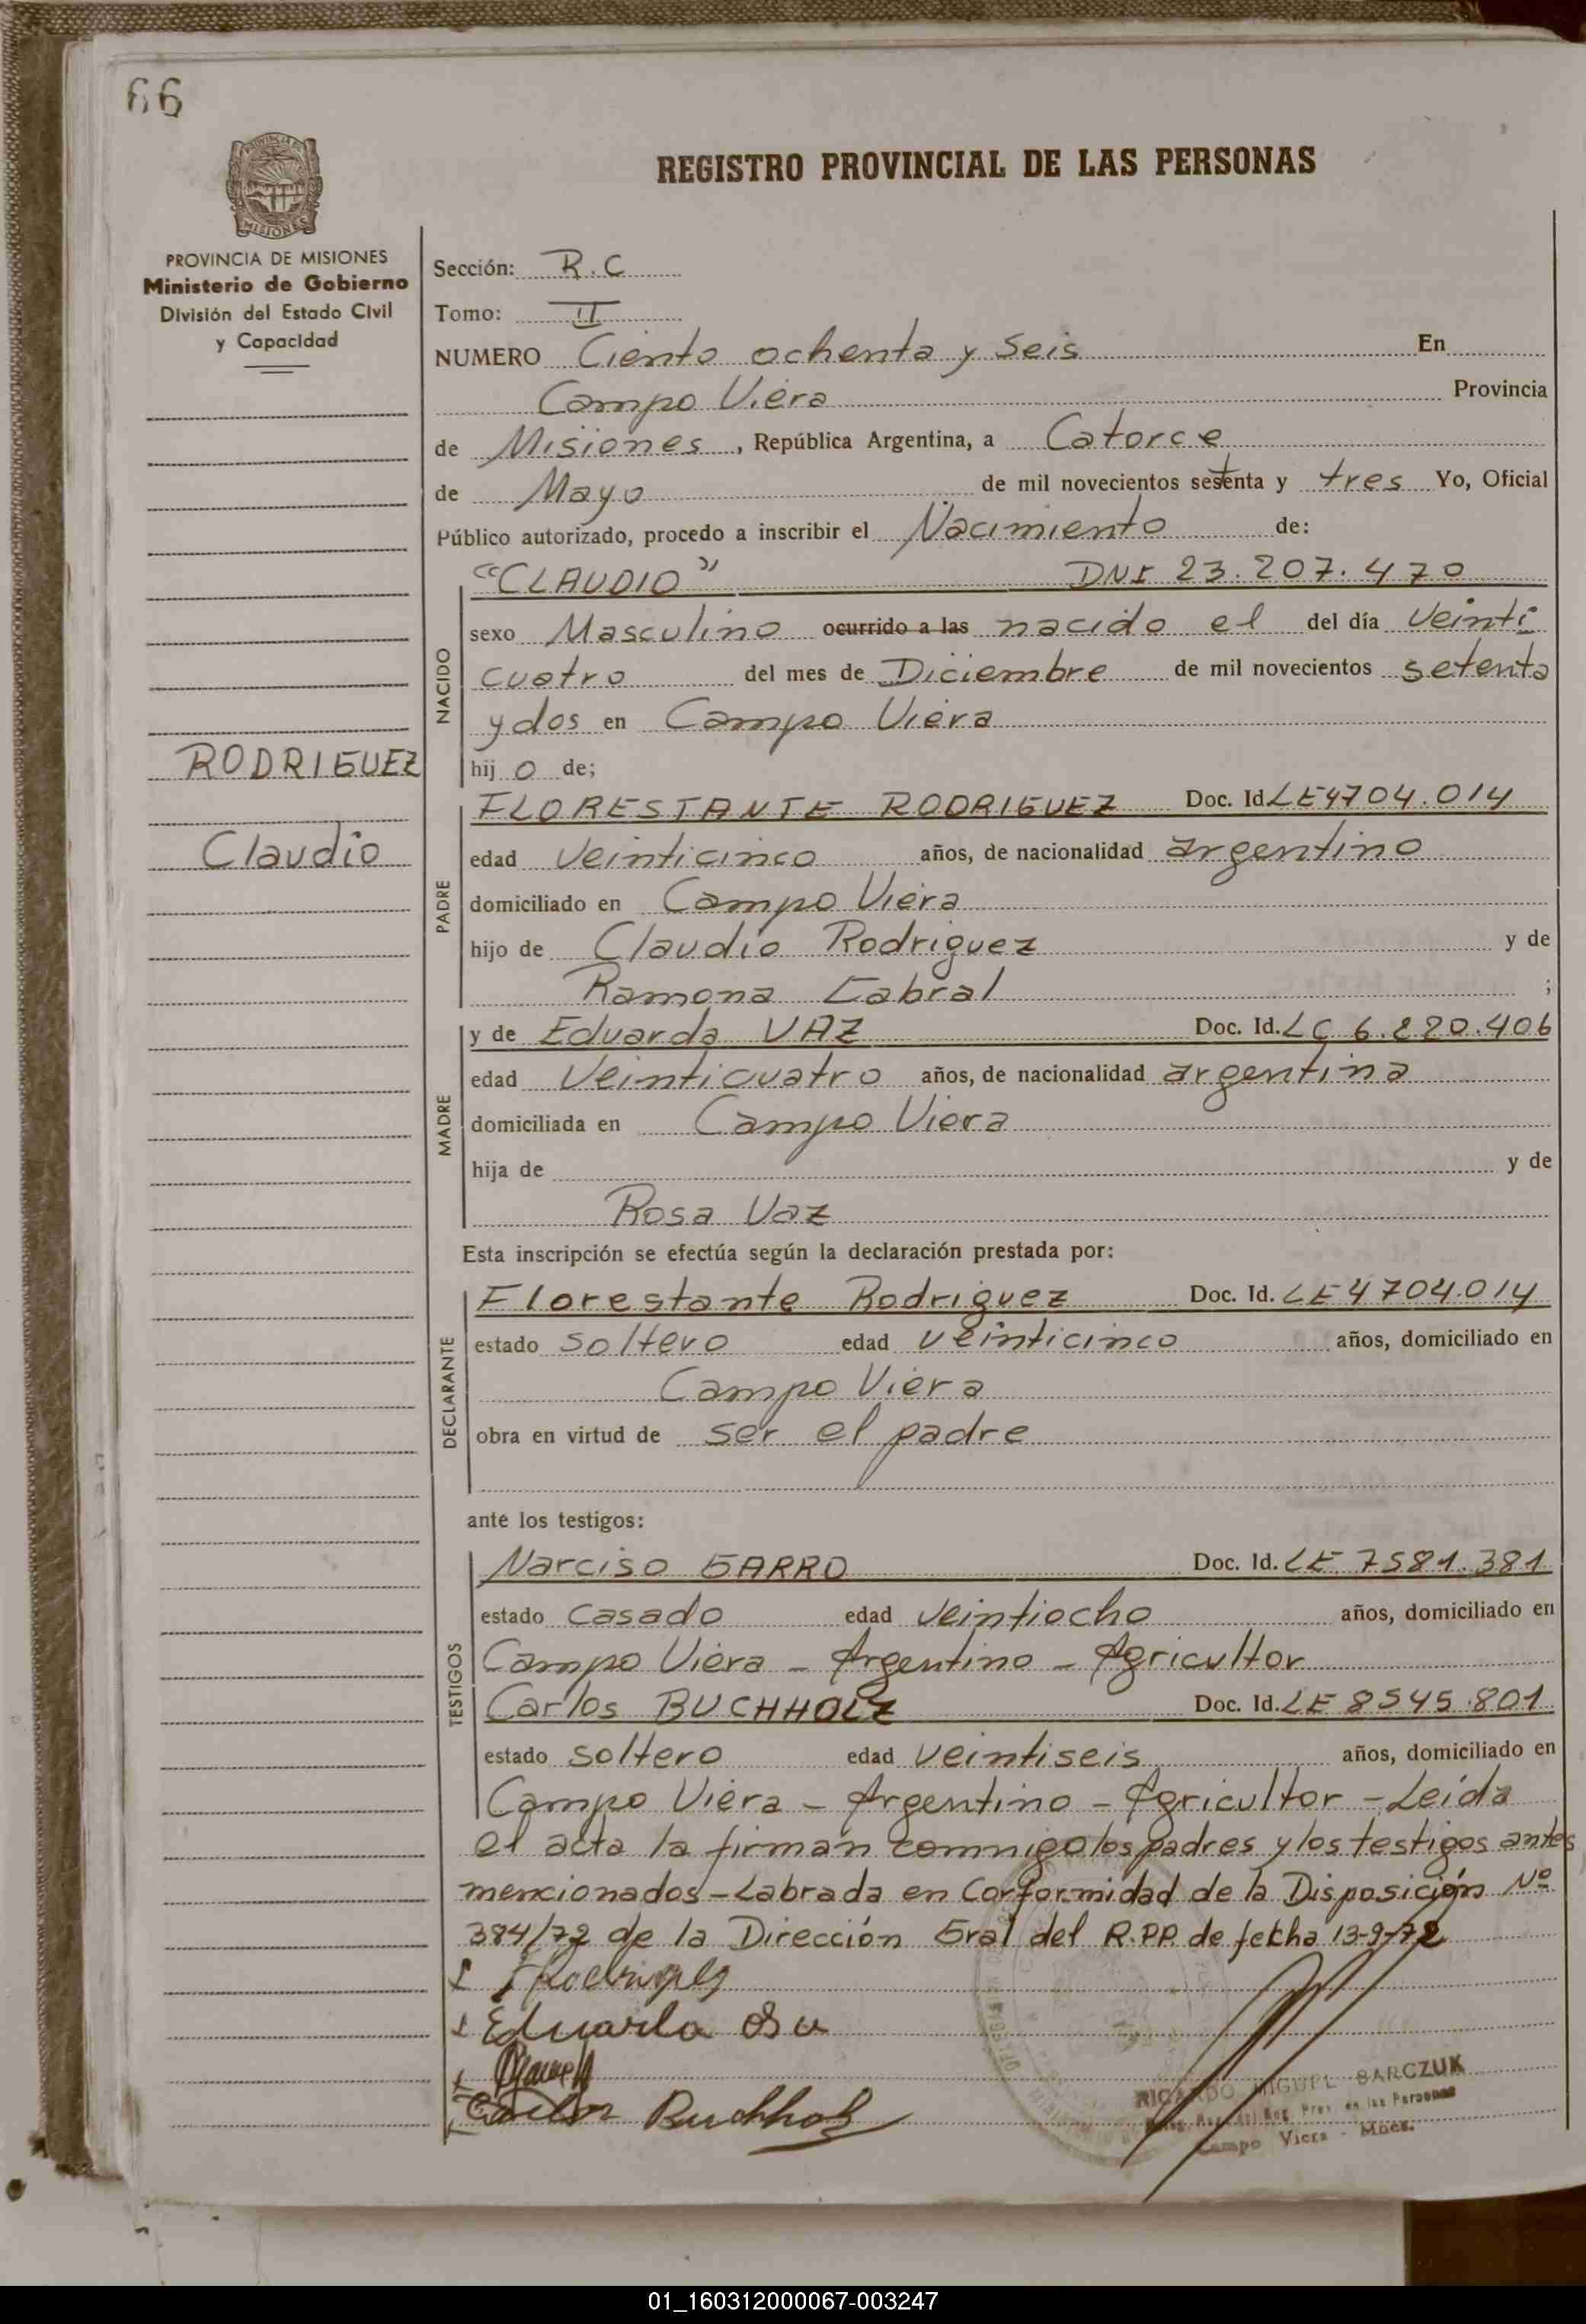 66
REGISTRO PROVINCIAL DE LAS PERSONAS
PROVINCIA DE MISIONES
Ministerio de Gobierno
División del Estado Civil
y Capacidad
RODRIGUEZ
Claudio
Sección: R.C
Tomo: II
NUMERO Ciento ochenta y seis En
Campo Viera Provincia
de Misiones, República Argentina, a Catorce
de Mayo de mil novecientos setenta y tres Yo, Oficial
Público autorizado, procedo a inscribir el Nacimiento de:
NACIDO
"CLAUDIO" DNI 23.207.470
sexo Masculino ocurrido a las nacido el del día veinti
cuatro del mes de Diciembre de mil novecientos setenta
y dos en Campo Viera
hijo de;
PADRE
FLORESTANTE RODRIGUEZ Doc. Id LE 4704.014
edad veinticinco años, de nacionalidad argentino
domiciliado en Campo Viera
hijo de Claudio Rodriguez y de
Ramona Cabral ;
MADRE
y de Eduarda VAZ Doc. Id. LC 6.220.406
edad veinticuatro años, de nacionalidad argentina
domiciliada en Campo Viera
hija de y de
Rosa Vaz
Esta inscripción se efectúa según la declaración prestada por:
DECLARANTE
Florestante Rodriguez Doc. Id. LE 4704.014
estado soltero edad veinticinco años, domiciliado en
Campo Viera
obra en virtud de ser el padre
ante los testigos:
TESTIGOS
Narciso GARRO Doc. Id. LE 7581.381
estado casado edad veintiocho años, domiciliado en
Campo Viera - Argentino - Agricultor
Carlos BUCHHOLZ Doc. Id. LE 8545.801
estado soltero edad veintiseis años, domiciliado en
Campo Viera - Argentino - Agricultor - Leída
el acta la firman conmigo los padres y los testigos antes
mencionados - Labrada en Corformidad de la Disposición Nº
384/72 de la Dirección Gral del R.P.P. de fecha 13-9-72
Eduarda
Carlos Buchholz
RICARDO MIGUEL BARCZUK
Campo Viera - Mnes.
01_160312000067-003247